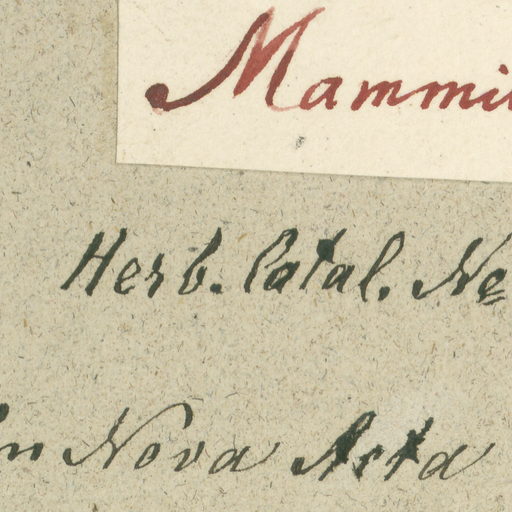 Mammi
Herb. Catal. No
in Nova Acta